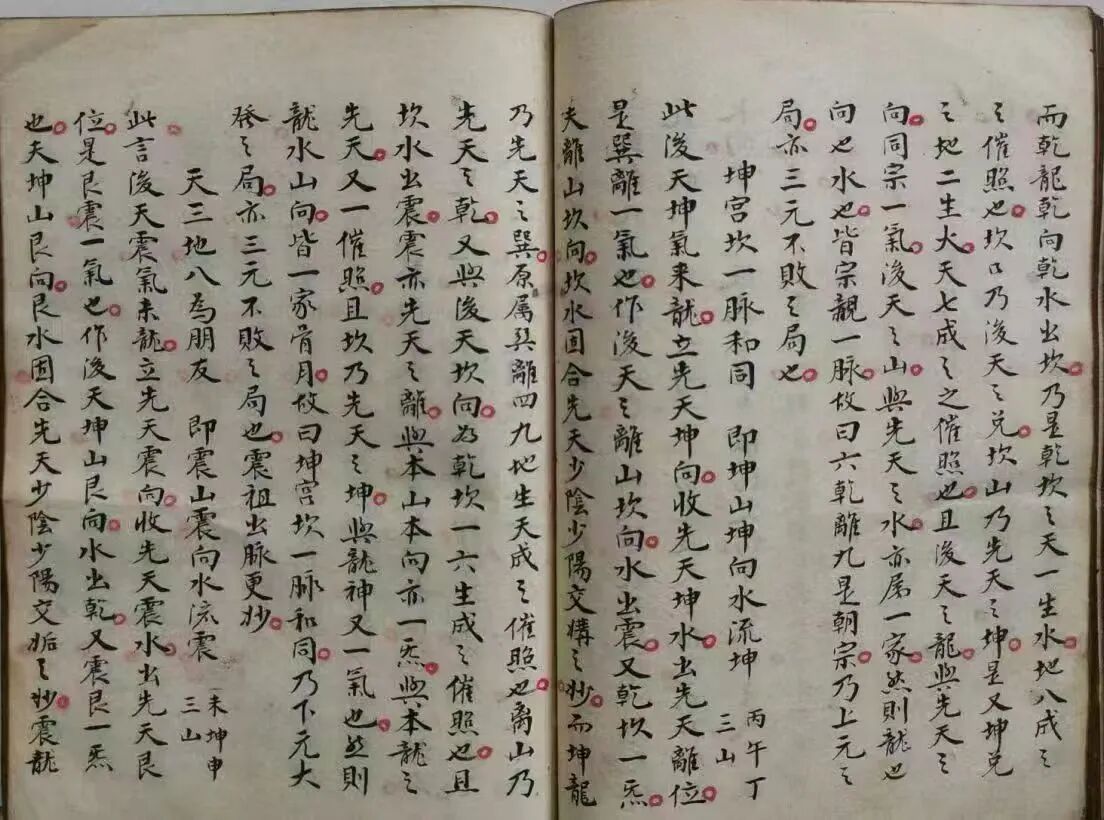 而乾龍乾向乾水出坎乃是乾坎之天一生水地八成之
之催照也坎口乃後天之兑坎山乃先天之坤是又坤兑
之地二生火天七成之之催照也且後天之龍與先天之
向同宗一氣後天之山與先天之水亦属一家然則龍也
向也水也皆宗親一脉故曰六乾離九是朝宗乃上元之
局亦三元不敗之局也
坤宫坎一脉和同 即坤山坤向水流坤 丙午丁三山
此後天坤氣来龍立先天坤向收先天坤水出先天離位
是巽離一氣也作後天之離山坎向水出震又乾坎一炁
夫離山坎向坎水固合先天少陰少陽交媾之妙而坤龍
乃先天之巽原属巽離四九地生天成之催照也离山乃
先天之乾又與後天坎向為乾坎一六生成之催照也且
坎水出震震亦先天之離與本山本向亦一炁與本龍之
先天又一催照且坎乃先天之坤與龍神又一氣也然則
龍水山向皆一家骨月故曰坤宫坎一脉和同乃下元大
發之局亦三元不敗之局也震祖出脉更妙
天三地八為朋友 即震山震向水流震 未坤申三山
此言後天震氣来龍立先天震向收先天震水出先天艮
位是艮震一氣也作後天坤山艮向水出乾又震艮一炁
也夫坤山艮向艮水固合先天少陰少陽交姤之妙震龍